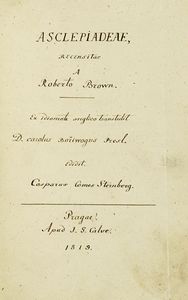 ASCLEPIADEAE,
RECENSITAE
A
Roberto Brown.
Ex idiomate anglico transtulit
D. Carolus Bořiwogus Presl.
Edidit
Casparus Comes Sternberg.
Pragae
Apud J. G. Calve.
1819.